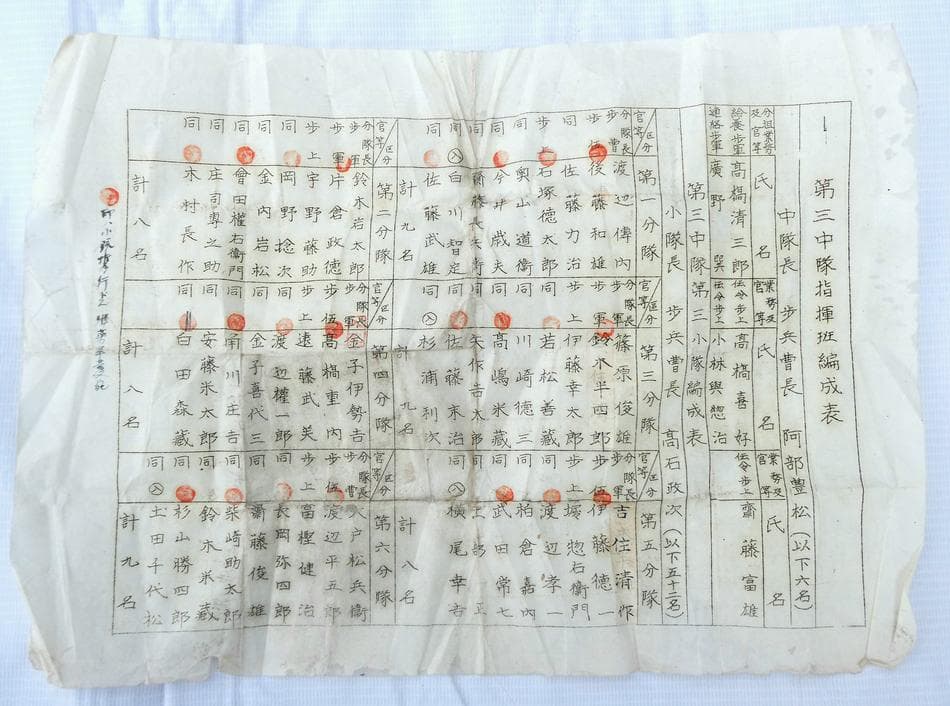 第三中隊指揮班編成表
中隊長 歩兵曹長 阿部豊松(以下六名)
分担業務及官等 氏名 業務及官等 氏名 業務及官等 氏名
給養歩軍 高橋清三郎 伝令歩上 高橋喜好 伝令歩上 齋藤富雄
連絡歩軍 廣野 伝令歩上 小林與惣治
第三中隊第三小隊編成表
小隊長 歩兵曹長 高石政次(以下五十二名)
官等/区分 第一分隊 官等/区分 第三分隊 官等/区分 第五分隊
分隊長 歩曹 渡辺傳内 分隊長 歩軍 篠原俊雄 分隊長 歩軍 吉住清作
歩伍 後藤和雄 歩軍 鈴木半四郎 歩伍 伊藤德一
同 佐藤力治 歩上 伊藤幸太郎 歩上 堀惣右衛門
歩上 石塚德太郎 同 若松善藏 同 渡辺孝一
同 奥山道衛 同 川崎德三 同 柏倉嘉内
同 今井歳夫 同 高嶋米藏 同 武田常七
同 齋藤長兵衛 同 矢作吉太郎 同
同 白川智定 同 佐藤末治 同 横尾幸吉
同 佐藤武雄 同 杉浦利次
計九名 計九名 計八名
官等/区分 第二分隊 官等/区分 第四分隊 官等/区分 第六分隊
分隊長 歩軍 鈴木岩太郎 分隊長 歩軍 金子伊勢吉 分隊長 歩曹 八戸松兵衛
歩軍 片倉政德 歩伍 高橋重内 歩伍 渡辺平五郎
歩上 宇野藤助 歩上 遠藤武美 歩上 富樫健治
同 岡野捻次 同 渡辺權一郎 同 長岡弥四郎
同 金内岩松 同 金子喜代三 同 齋藤俊雄
同 會田權右衛門 同 南川庄吉 同 柴崎助太郎
同 庄司專之助 同 安藤米太郎 同 鈴木米藏
同 木村長作 同 白田森藏 同 杉山勝四郎
同 土田千代松
計八名 計八名 計九名